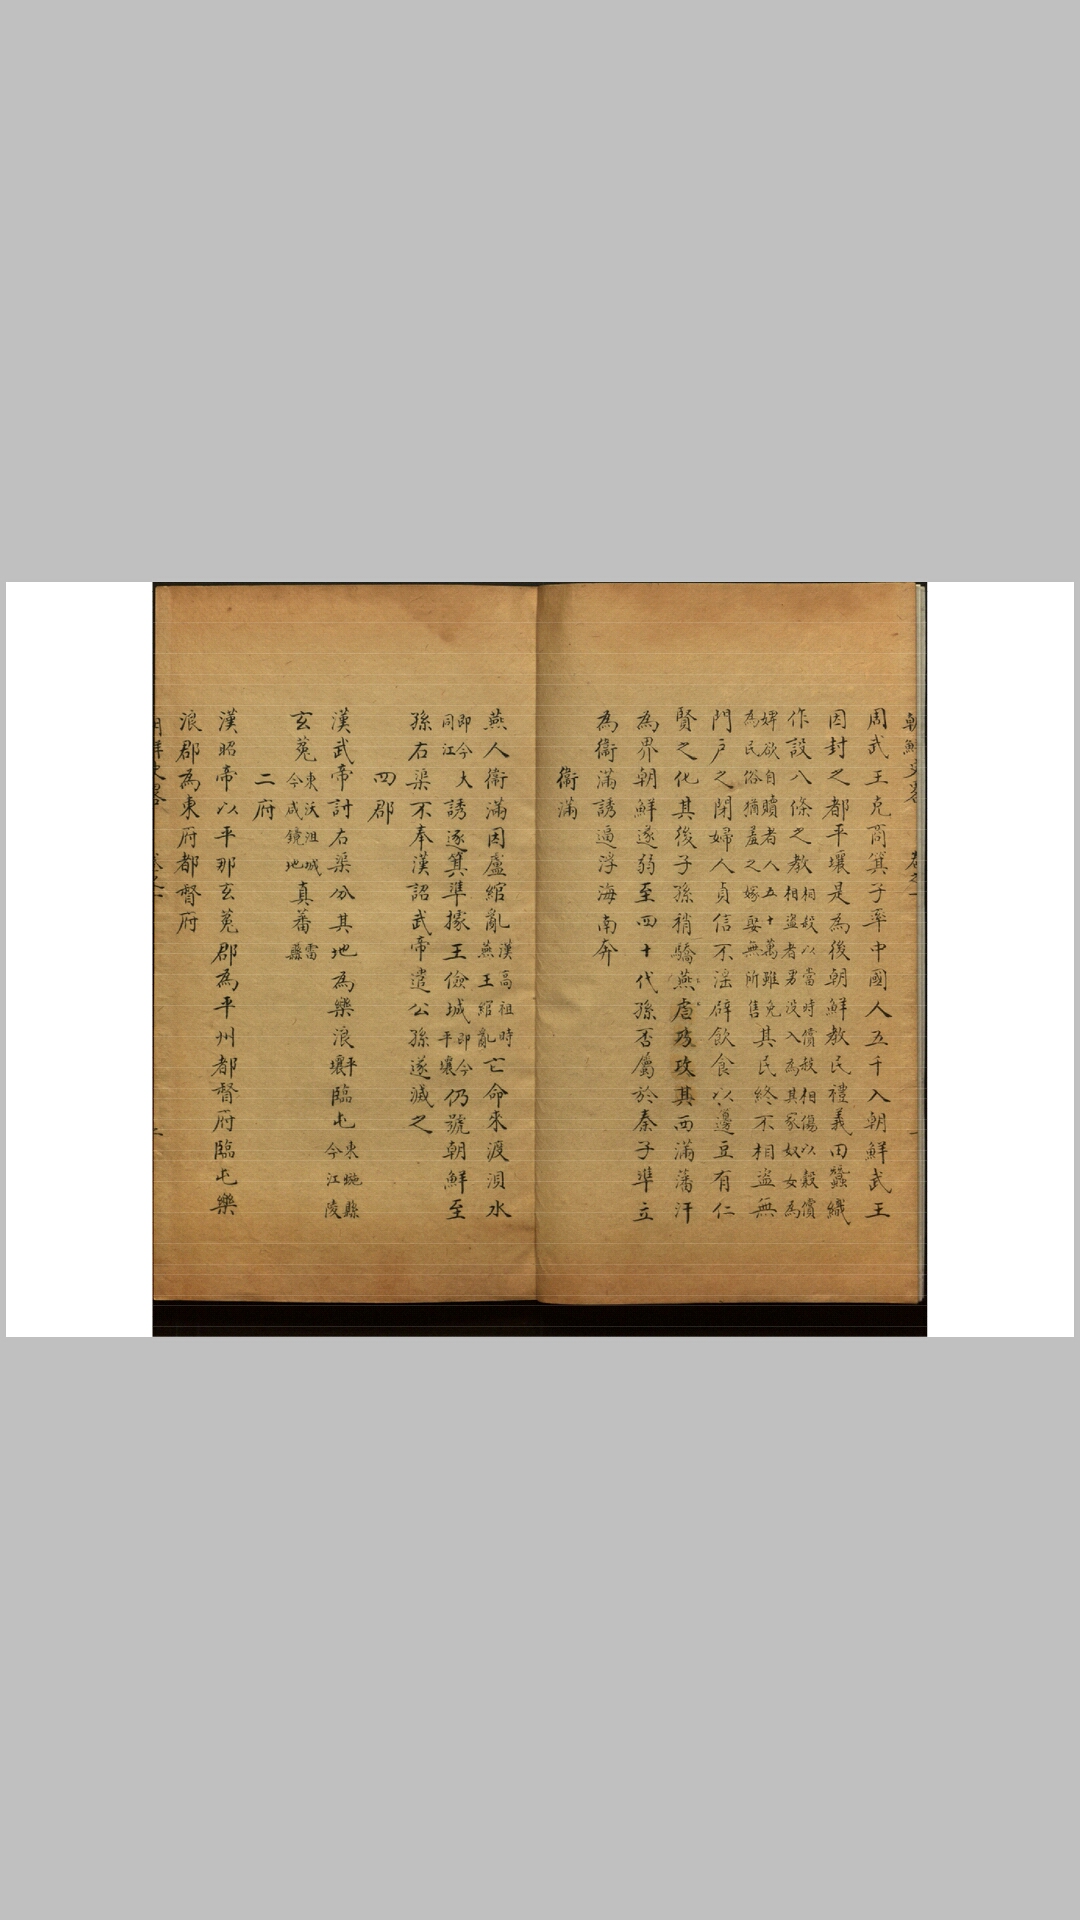 周武王克商箕子率中國人五千入朝鮮武王
因封之都平壤是為後朝鮮教民禮義田蠶織
作設八條之教相殺以當時償殺相傷以穀償相盜者男沒入為其家奴女為
婢欲自贖者人五十萬雖免為民俗猶羞之嫁娶無所售其民終不相盜無
門戶之閉婦人貞信不淫辟飲食以籩豆有仁
賢之化其後子孫稍驕虐燕攻其西滿藩汗
為界朝鮮遂弱至四十代孫否屬於秦子準立
為衞滿誘逼浮海南奔
衞滿
燕人衞滿因盧綰亂漢高祖時燕王綰亂亡命來渡浿水
即今大同江誘逐箕準據王儉城即今平壤仍號朝鮮至
孫右渠不奉漢詔武帝遣公孫遂滅之
四郡
漢武帝討右渠分其地為樂浪平壤臨屯東暆縣今江陵
玄菟東沃沮城今咸鏡地真蕃霅縣
二府
漢昭帝以平那玄菟郡為平州都督府臨屯樂
浪郡為東府都督府